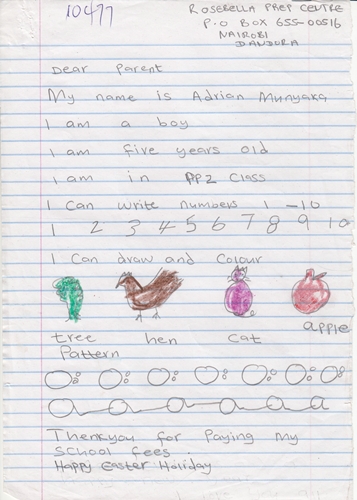 10477
ROSEBELLA PREP CENTRE
P.O BOX 655-00516
NAIROBI
DANDORA
Dear Parent
My name is Adrian Munyaka
I am a boy
I am five years old
I am in PP2 Class
I Can write numbers 1 - 10
1 2 3 4 5 6 7 8 9 10
I Can draw and Colour
tree hen cat apple
Pattern
Thankyou for Paying My
School fees.
Happy Easter Holiday